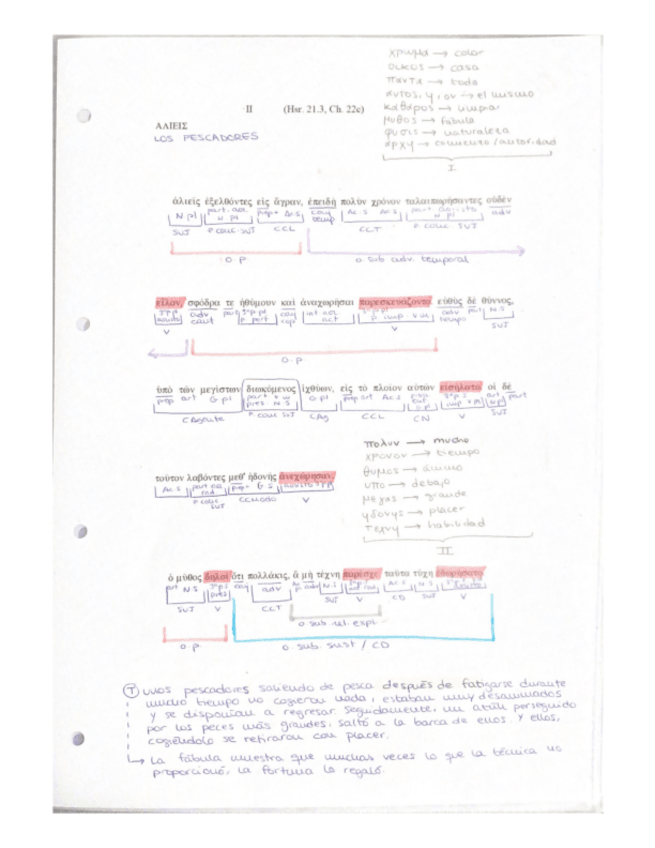 χρημα → color
οικος → casa
παντα → todo
αυτος, η, ον → el mismo
καθαρος → limpiar
μυθος → fábula
φυσις → naturaleza
αρχη → comienzo / autoridad
I
II (Hsr. 21.3, Ch. 22c)
ΑΛΙΕΙΣ
LOS PESCADORES
ἁλιεῖς ἐξελθόντες εἰς ἄγραν, ἐπειδὴ πολὺν χρόνον ταλαιπωρήσαντες οὐδὲν
N pl part. aor. N pl prep+ Ac.S conj temp Ac.S Ac.S part aoristo N pl adv
SUJ P conc. SUJ CCL CCT P conc SUJ
O.P O. sub adv. temporal
εἷλον, σφόδρα τε ἠθύμουν καὶ ἀναχωρῆσαι παρεσκευάζοντο. εὐθὺς δὲ θύννος,
V V SUJ
O.P
ὑπὸ τῶν μεγίστων διωκόμενος ἰχθύων, εἰς τὸ πλοῖον αὐτῶν εἰσήλατο. οἱ δὲ
prep art G.pl part pres N.S G.pl prep art Ac.S
C Agente P conc SUJ CAg CCL CN V SUJ
πολυν → mucho
χρονον → tiempo
θυμος → ánimo
υπο → debajo
μεγας → grande
ηδονης → placer
τεχνη → habilidad
II
τοῦτον λαβόντες μεθ' ἡδονῆς ἀνεχώρησαν.
Ac.S prep+ G S
P conc SUJ CCModo V
ὁ μῦθος δηλοῖ ὅτι πολλάκις, ἃ μὴ τέχνη παρέσχε, ταῦτα τύχη ἐδωρήσατο.
art N.S conj adv
SUJ V CCT SUJ V CD SUJ V
O. sub. ul. expl.
O.P. O. sub. sust / CD
T Unos pescadores saliendo de pesca después de fatigarse durante
mucho tiempo no cogieron nada, estaban muy desanimados
y se disponían a regresar. Seguidamente, un atún perseguido
por los peces más grandes, saltó a la barca de ellos. Y ellos,
cogiéndolo se retiraron con placer.
↳ La fábula muestra que muchas veces lo que la técnica no
proporcionó, la fortuna lo regaló.